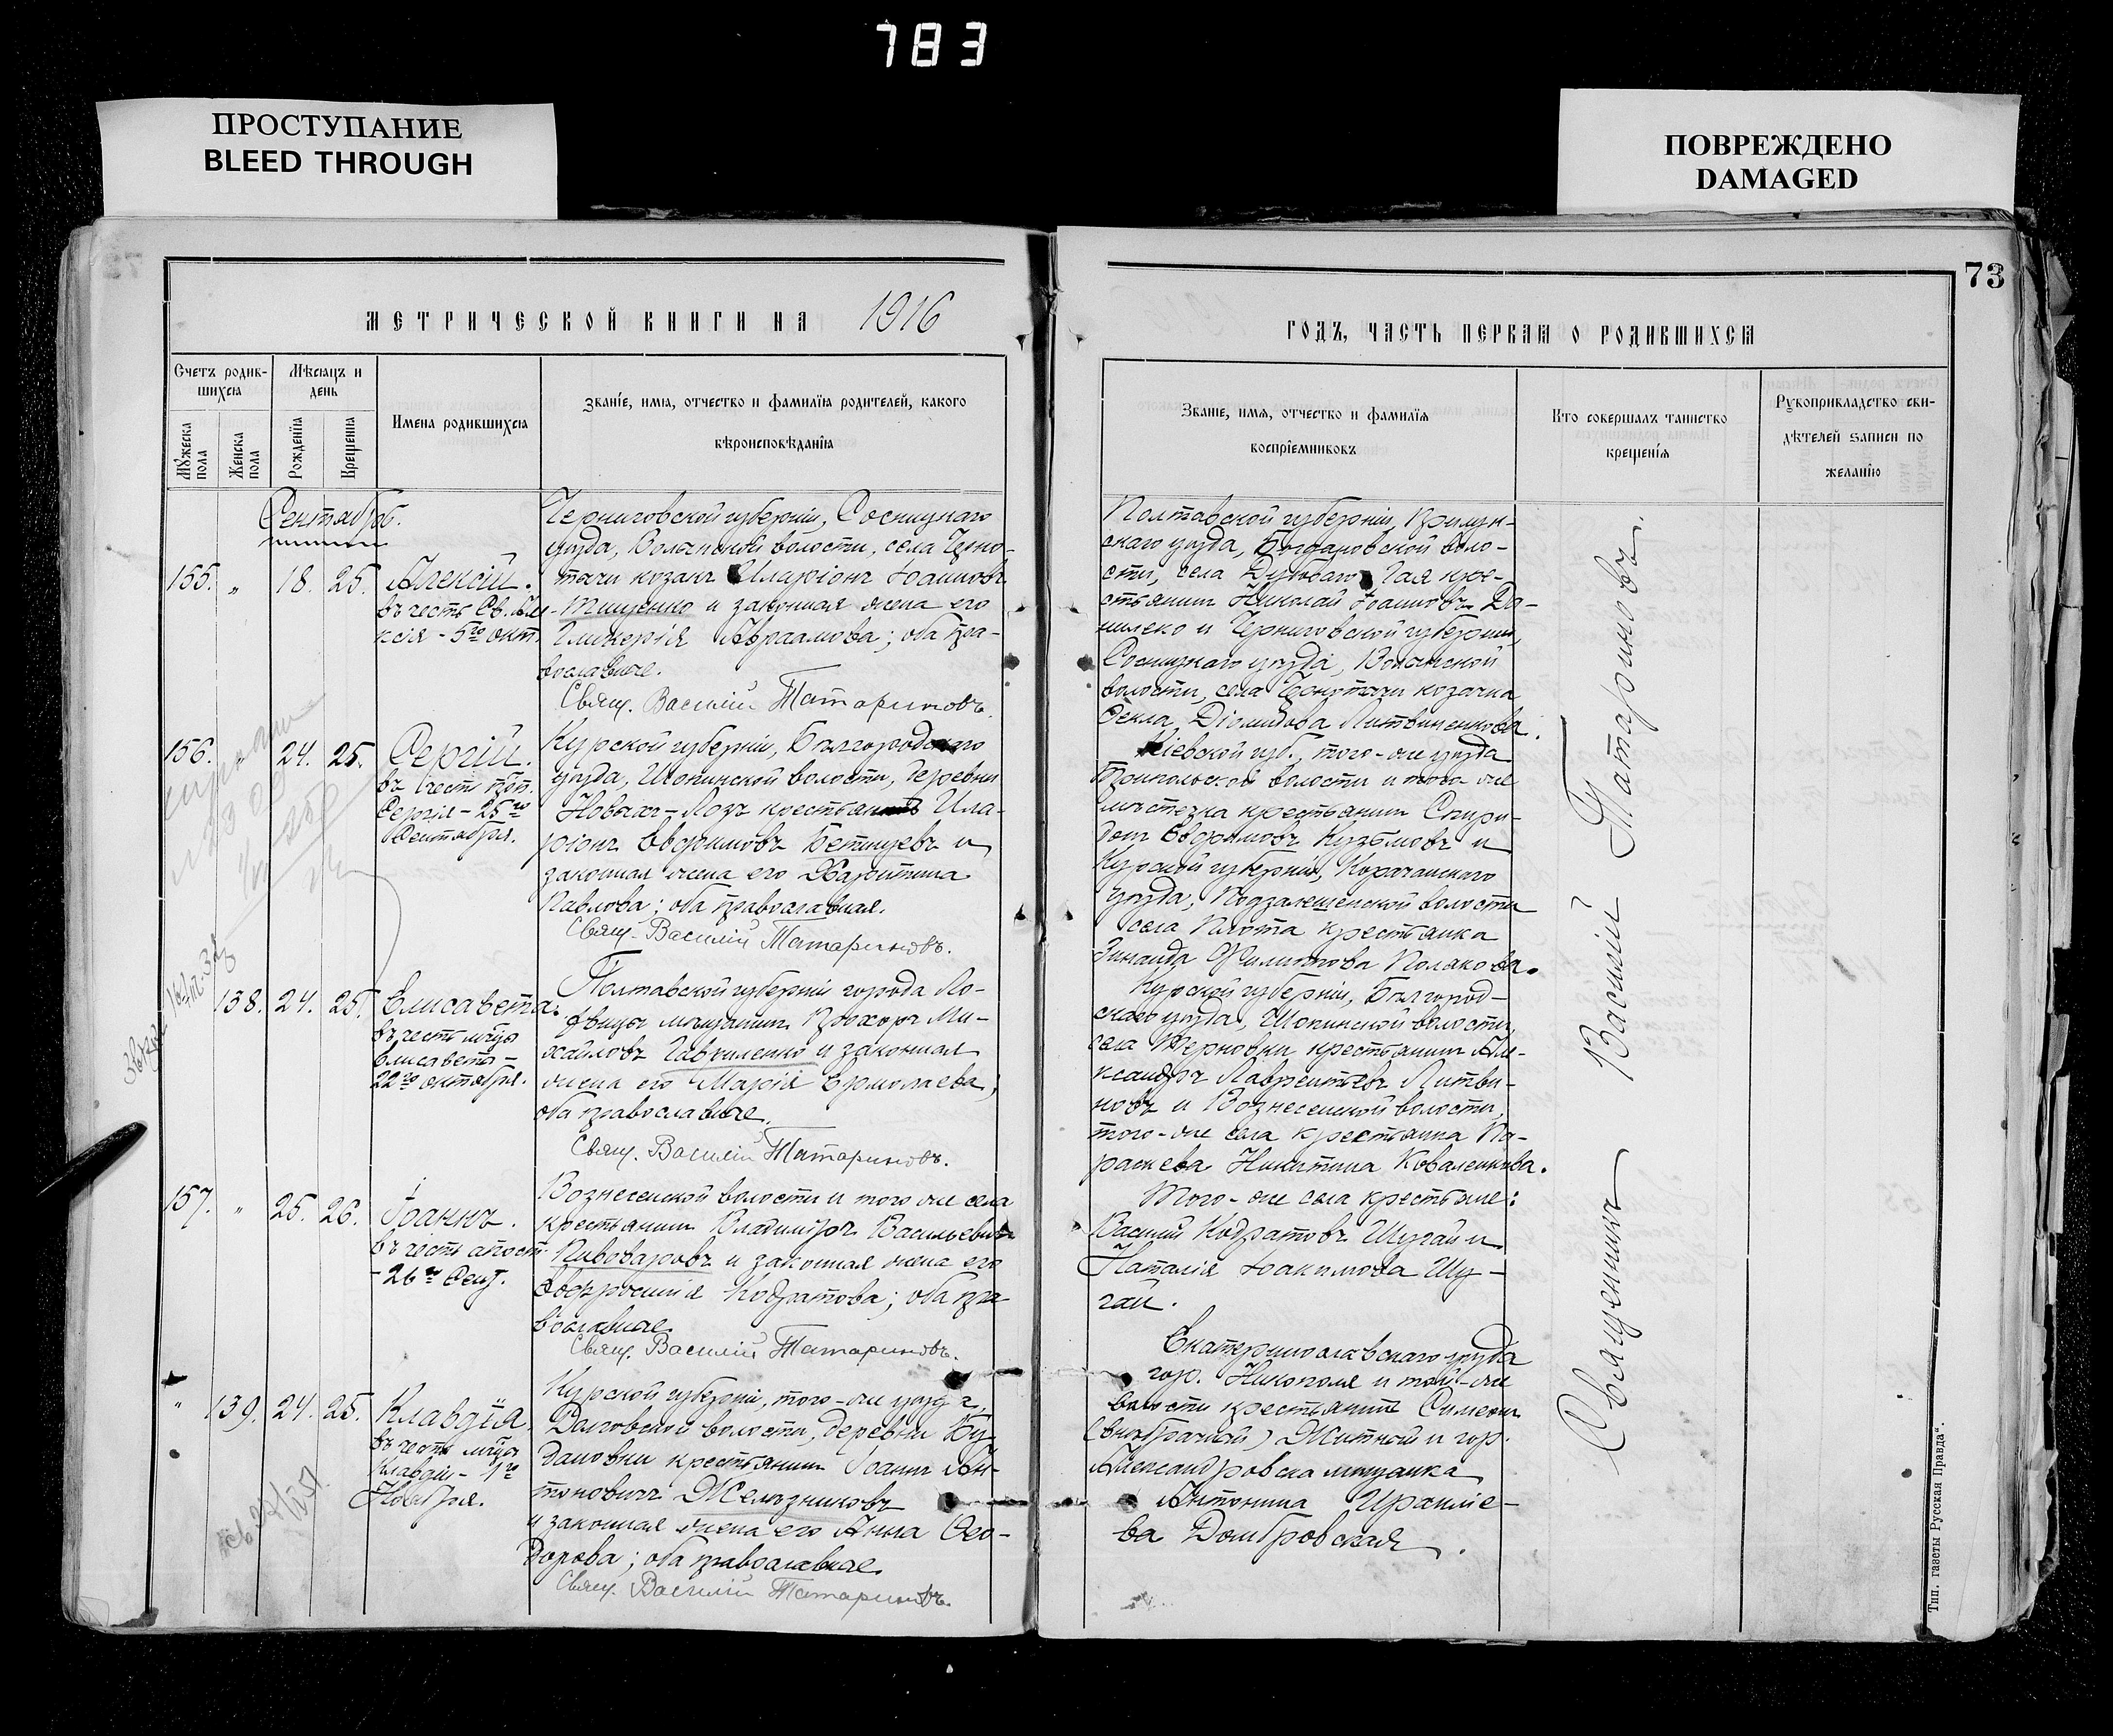 783
ПРОСТУПАНИЕ
BLEED THROUGH
ПОВРЕЖДЕНО
DAMAGED
73
МЕТРИЧЕСКОЙ КНИГИ НА 1916
Счетъ родив-
шихся
Мѣсяцъ и
день
Имена родившихся
Званіе, имя, отчество и фамилія родителей, какого
вѣроисповѣданія
Мужеска пола
Женска пола
Рожденія
Крещенія
Сентябрь.
155. " 18. 25. Алексій.
въ честь Св. Але-
ксія - 5го окт.
Черниговской губерніи, Сосницкаго
уѣзда, Волынской волости, села
козакъ Иларіонъ Іоанновъ
Тищенко и законная жена его
Гликерія Авраамова; оба пра-
вославные.
Свящ. Василій Татариновъ.
156. " 24. 25. Сергій.
въ честь преп.
Сергія - 25го
Сентября.
Курской губерніи, Бѣлгородскаго
уѣзда, Шопинской волости, деревни
Новыхъ-Лозъ крестьянинъ Ила-
ріонъ Евфимовъ и
законная жена его Харитина
Павлова; оба православная.
Свящ. Василій Татариновъ.
138. 24. 25. Елисавета.
въ честь мчцы
Елисаветы -
22го октября.
Полтавской губерніи города Ло-
хвицы мѣщанинъ Прохоръ Ми-
хайловъ Гавриленко и законная
жена его Марія Ермолаева;
оба православные.
Свящ. Василій Татариновъ.
157. " 25. 26. Іоаннъ.
въ честь апост.
- 26го Сент.
Вознесенской волости и того же села
крестьянинъ Владиміръ Васильевичъ
Пивоваровъ и законная жена его
Евфросинія Кодратова; оба пра-
вославные.
Свящ. Василій Татариновъ.
" 139. 24. 25. Клавдія.
въ честь мчцы
Клавдіи - 1го
Ноября.
Курской губерніи, того-же уѣзда,
волости, деревни
крестьянинъ Іоаннъ Ан-
тоновичъ Желѣзниковъ
и законная жена его Анна Ѳео-
дорова; оба православные.
Свящ. Василій Татариновъ.
ГОДЪ, ЧАСТЬ ПЕРВАЯ О РОДИВШИХСЯ
Званіе, имя, отчество и фамилія
воспріемниковъ
Кто совершалъ таинство
крещенія
Рукоприкладство сви-
дѣтелей записи по
желанію
Полтавской губерніи, Прилук-
скаго уѣзда, Богдановской воло-
сти, села Дубоваго Гая кре-
стьянинъ Николай Іоанновъ Да-
нилеко и Черниговской губерніи,
Сосницкаго уѣзда, Волынской
волости, села козачка
Ѳекла Діомидова Литвиненкова.
Кіевской губ., того-же уѣзда
волости и того же
мѣстечка крестьянинъ Спири-
донъ Евфимовъ Кузьмовъ и
Курской губерніи, Корочанскаго
уѣзда, волости
села Плота крестьянка
Зинаида Филиппова Полякова.
Курской губерніи, Бѣлгород-
скаго уѣзда, Шопинской волости,
села Терновки крестьянинъ Але-
ксандръ Лаврентьевъ Литви-
новъ и Вознесенской волости,
того-же села крестьянка Па-
раскева Никитина Коваленкова.
Того-же села крестьяне:
Василій Кодратовъ Шугай и
Наталія Іоакимова Шу-
гай.
Екатеринославскаго уѣзда
гор. Никополя и той-же
волости крестьянинъ Симеонъ
(внѣбрачный) Житной и гор.
Александровска мѣщанка
Антонина Ираклie-
ва Домбровская.
Священникъ Василій Татариновъ.
Тип. газеты Русская Правда".